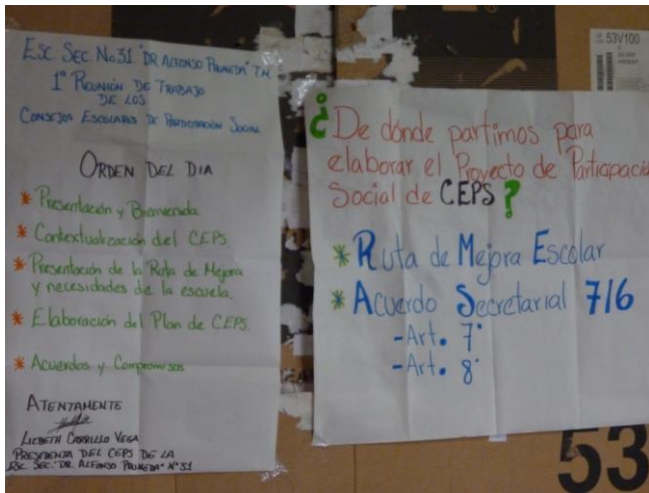 ESC. SEC. No.31 "DR ALFONSO PRUNEDA" T.M.
1ª REUNIÓN DE TRABAJO
DE LOS
CONSEJOS ESCOLARES DE PARTICIPACIÓN SOCIAL
ORDEN DEL DIA
* Presentación y Bienvenida.
* Contextualización del CEPS.
* Presentación de la Ruta de Mejora
y necesidades de la escuela.
* Elaboración del Plan de CEPS.
* Acuerdos y Compromisos
ATENTAMENTE
LIZBETH CARRILLO VEGA
PRESIDENTA DEL CEPS DE LA
ESC. SEC. "DR. ALFONSO PRUNEDA" Nº 31
¿De dónde partimos para
elaborar el Proyecto de Participació
Social de CEPS?
* Ruta de Mejora Escolar
* Acuerdo Secretarial 716
-Art. 7°
-Art. 8°
53V100
53